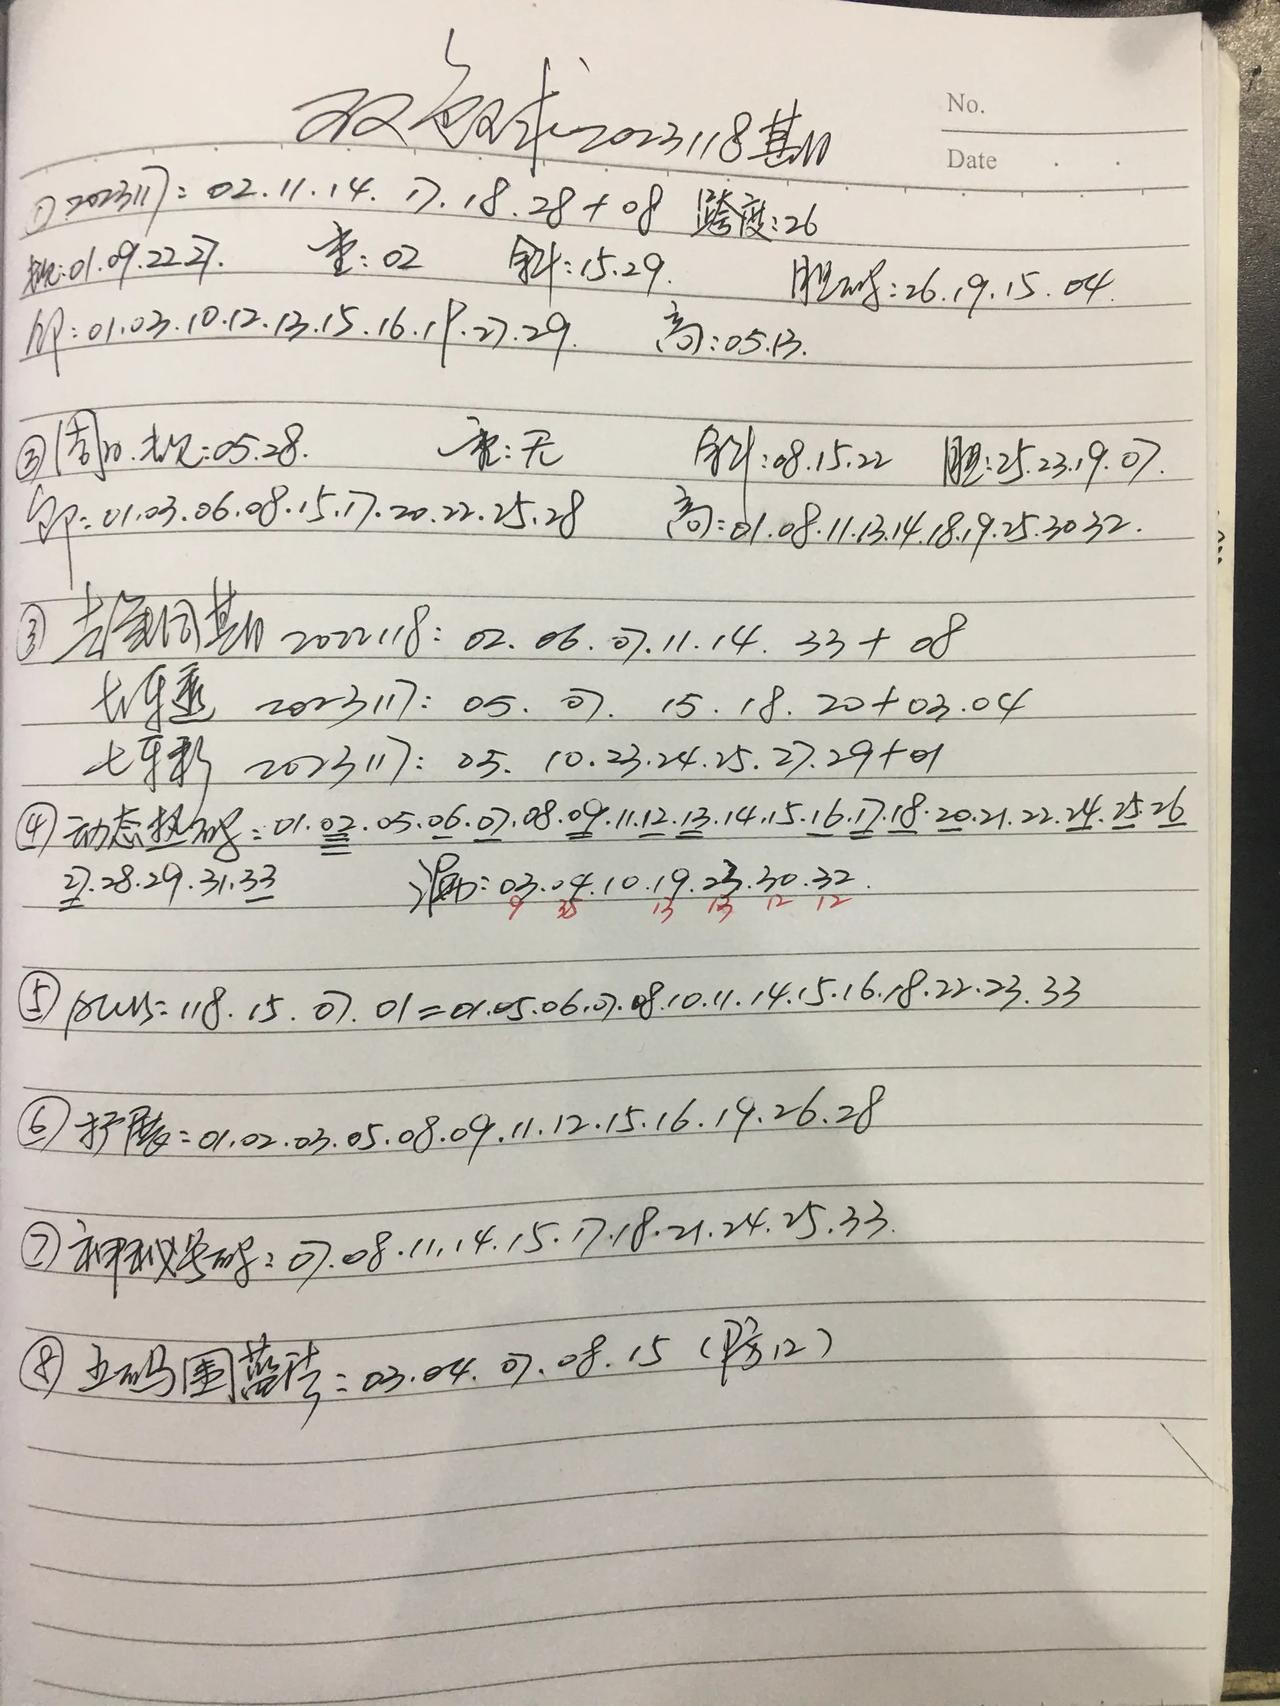 双色球2023118期
No.
Date
① 2023117: 02.11.14.17.18.28+08 跨度:26
枧:01.09.22.27. 重:02 斜:15.29. 胆码:26.19.15.04.
邻:01.03.10.12.13.15.16.19.27.29. 高:05.13.
② 隔 05.28. 重:无 斜:08.15.22 胆:25.23.19.07.
邻:01.03.06.08.15.17.20.22.25.28 高:01.08.11.13.14.18.19.25.30.32.
③ 去年同期 2022118: 02.06.07.11.14.33+08
大乐透 2023117: 05.07.15.18.20+03.04
七乐彩 2023117: 05.10.23.24.25.27.29+01
④ 动态热码:01.02.05.06.07.08.09.11.12.13.14.15.16.17.18.20.21.22.24.25.26
27.28.29.31.33 温:03.04.10.19.23.30.32.
9 35 13 13 12 12
⑤ 118.15.07.01=01.05.06.07.08.10.11.14.15.16.18.22.23.33
⑥ =01.02.03.05.08.09.11.12.15.16.19.26.28
⑦ 神秘号码:07.08.11.14.15.17.18.21.24.25.33.
⑧ 五码围蓝:03.04.07.08.15 (防12)